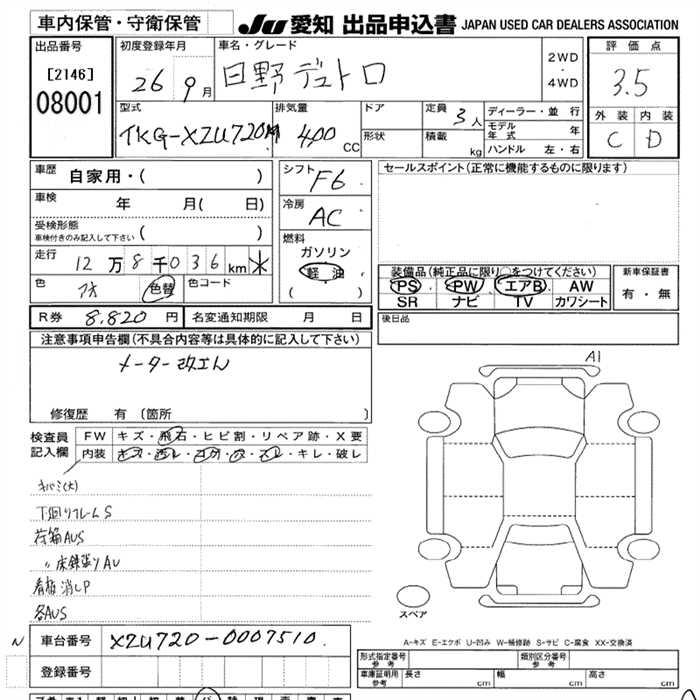 車内保管・守衛保管
JU 愛知 出品申込書 JAPAN USED CAR DEALERS ASSOCIATION
出品番号
[2146]
08001
初度登録年月
26 9月
車名・グレード
日野デュトロ
2WD
・
4WD
評価点
3.5
外装 内装
C D
型式
TKG-XZU720M
排気量
400 CC
ドア
形状
定員
3人
積載
kg
ディーラー・並 行
モデル年式 年
ハンドル 左・右
車歴
自家用・( )
車検
年 月( 日)
受検形態
車検付きのみ記入して下さい ( )
走行
12万8千036km
色
色替
色コード
R券 8,820 円
名変通知期限 月 日
シフト
F6
冷房
AC
燃料
ガソリン
軽油
( )
セールスポイント(正常に機能するものに限ります)
装備品(純正品に限り○をつけてください)
PS PW エアB AW
SR ナビ TV カワシート
新車保証書
有・無
後日品
注意事項申告欄(不具合内容等は具体的に記入して下さい)
メーター改ざん
修復歴 有 (箇所 )
検査員
記入欄
FW キズ・飛石・ヒビ割・リペア跡・X要
内装 キズ・汚レ・コゲ・穴・スレ・キレ・破レ
キバミ(大)
下廻りフレームS
荷箱AUS
〃床鉄張りAU
看板消しP
各AUS
A1
スペア
A-キズ E-エクボ U-凹み W-補修跡 S-サビ C-腐食 XX-交換済
N
車台番号 XZU720-0007510
登録番号
形式指定番号
参考
類別区分番号
参考
車庫証明用
参考
長さ cm 幅 cm 高さ cm